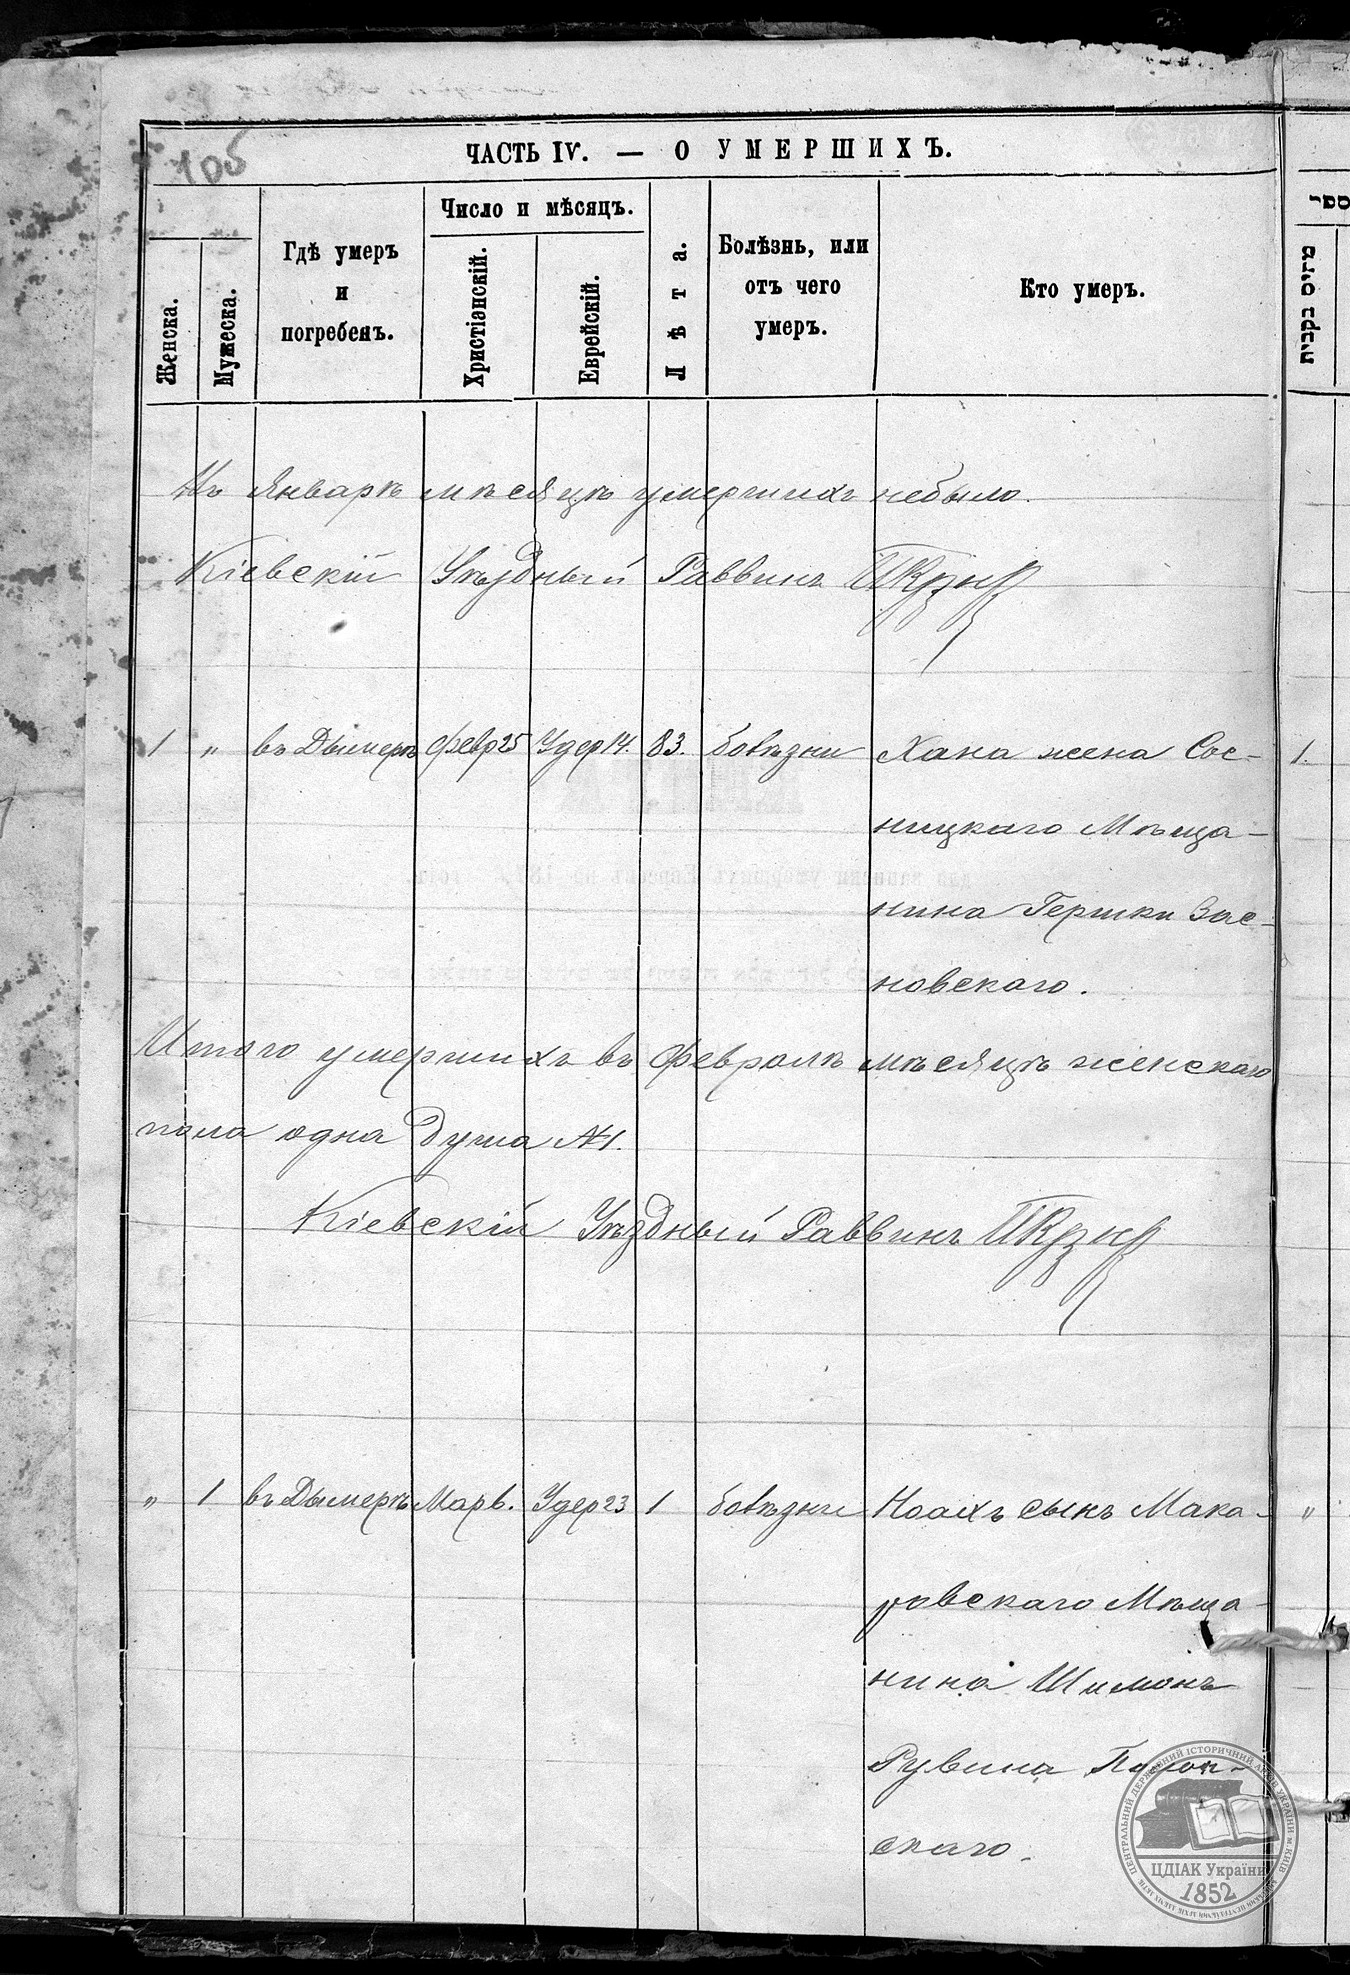 105
ЧАСТЬ IV. — О УМЕРШИХЪ.
Женска.
Мужеска.
Гдѣ умеръ и погребенъ.
Число и мѣсяцъ.
Христіэнскій.
Еврейскій.
Лѣта.
Болѣзнь, или отъ чего умеръ.
Кто умеръ.
מזיס בקבית
Въ Январѣ мѣсяцѣ умершихъ небыло.
Кіевскій Уѣздный Раввинъ
1 " въ Дымерѣ Февр 25 Удер 14. 83. болѣзни Хана жена Сос-
1.
ницкаго Мѣща-
нина Гершки Зас-
новскаго.
Итого умершихъ въ Февралѣ мѣсяцѣ женскаго
пола одна душа №1.
Кіевскій Уѣздный Раввинъ
" 1 въ Дымерѣ Мар 6. Удер 23 1 болѣзни Ноахъ сынъ Мака-
"
ровскаго Мѣща-
нина Шимонъ
Рувина
скаго.
ЦЕНТРАЛЬНИЙ ДЕРЖАВНИЙ ІСТОРИЧНИЙ АРХІВ УКРАЇНИ м. КИЇВ
ЦДІАК України
1852